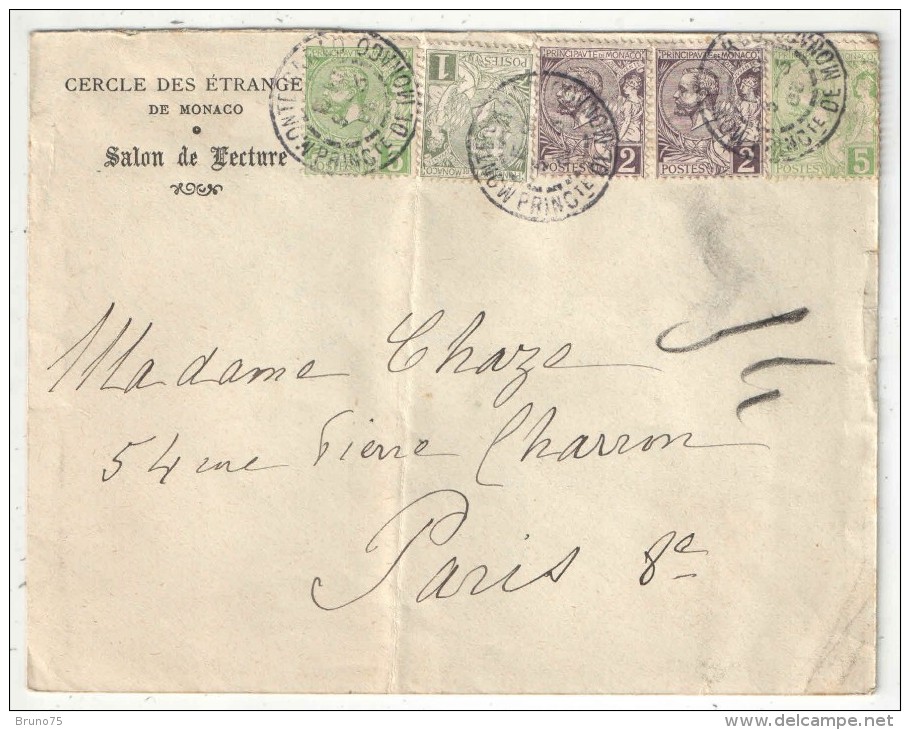 CERCLE DES ÉTRANGE
DE MONACO
Salon de Lecture
5
1
POSTES
PRINCIPAUTÉ DE MONACO
POSTES 2
PRINCIPAUTÉ DE MONACO
POSTES 2
POSTES 5
PRINCTE DE MONACO
PRINCTE DE MONACO
PRINCTE DE MONACO
Madame Chaze
54 rue Pierre Charron
Paris 8e
Bruno75
www.delcampe.net